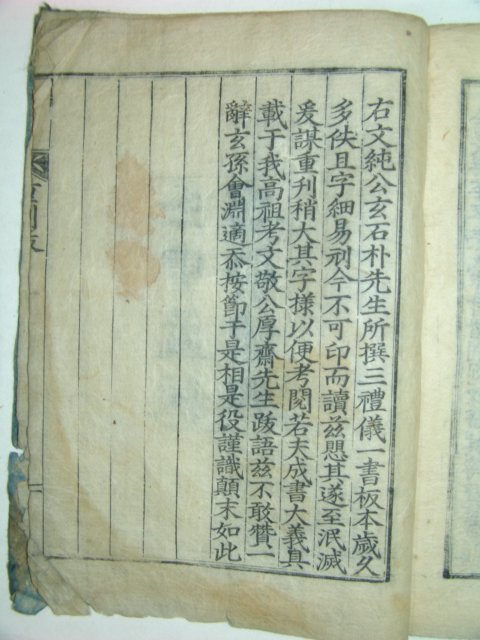 右文純公玄石朴先生所撰三禮儀一書板本歲久
多佚且字細易刓今不可印而讀玆懼其遂至泯滅
爰謀重刊稍大其字樣以便考閱若夫成書大義具
載于我高祖考文敬公厚齋先生跋語玆不敢贅一
辭玄孫會淵適忝按節于是相是役謹識顚末如此